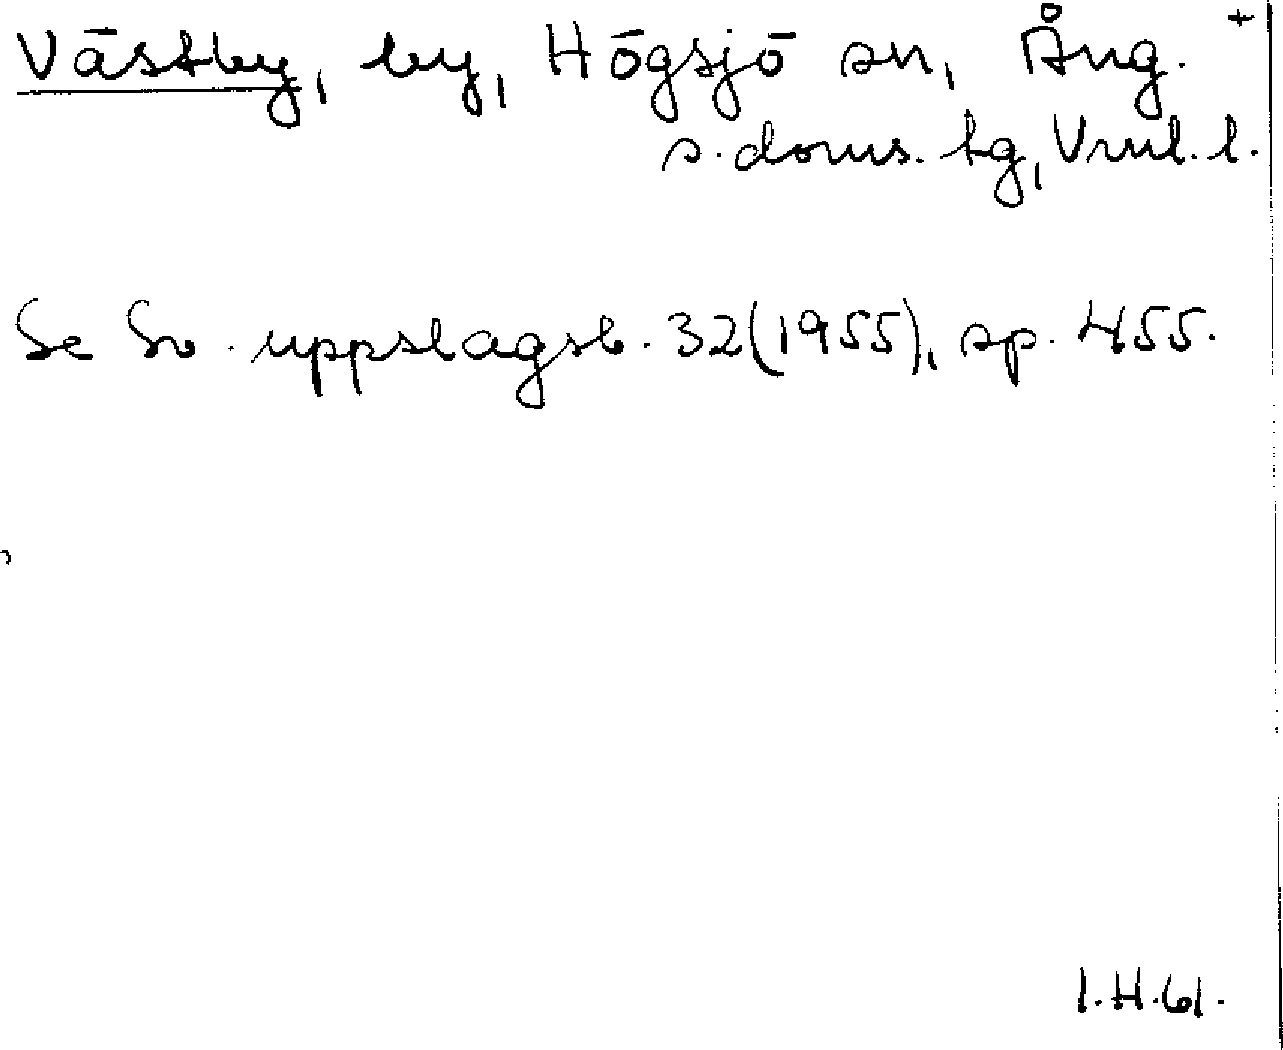 Västby, by, Högsjö sn, Ång. +
s. doms. tg, Vnl. l.
Se Sv. uppslagsb. 32(1955), sp. 455.
I.H.61.